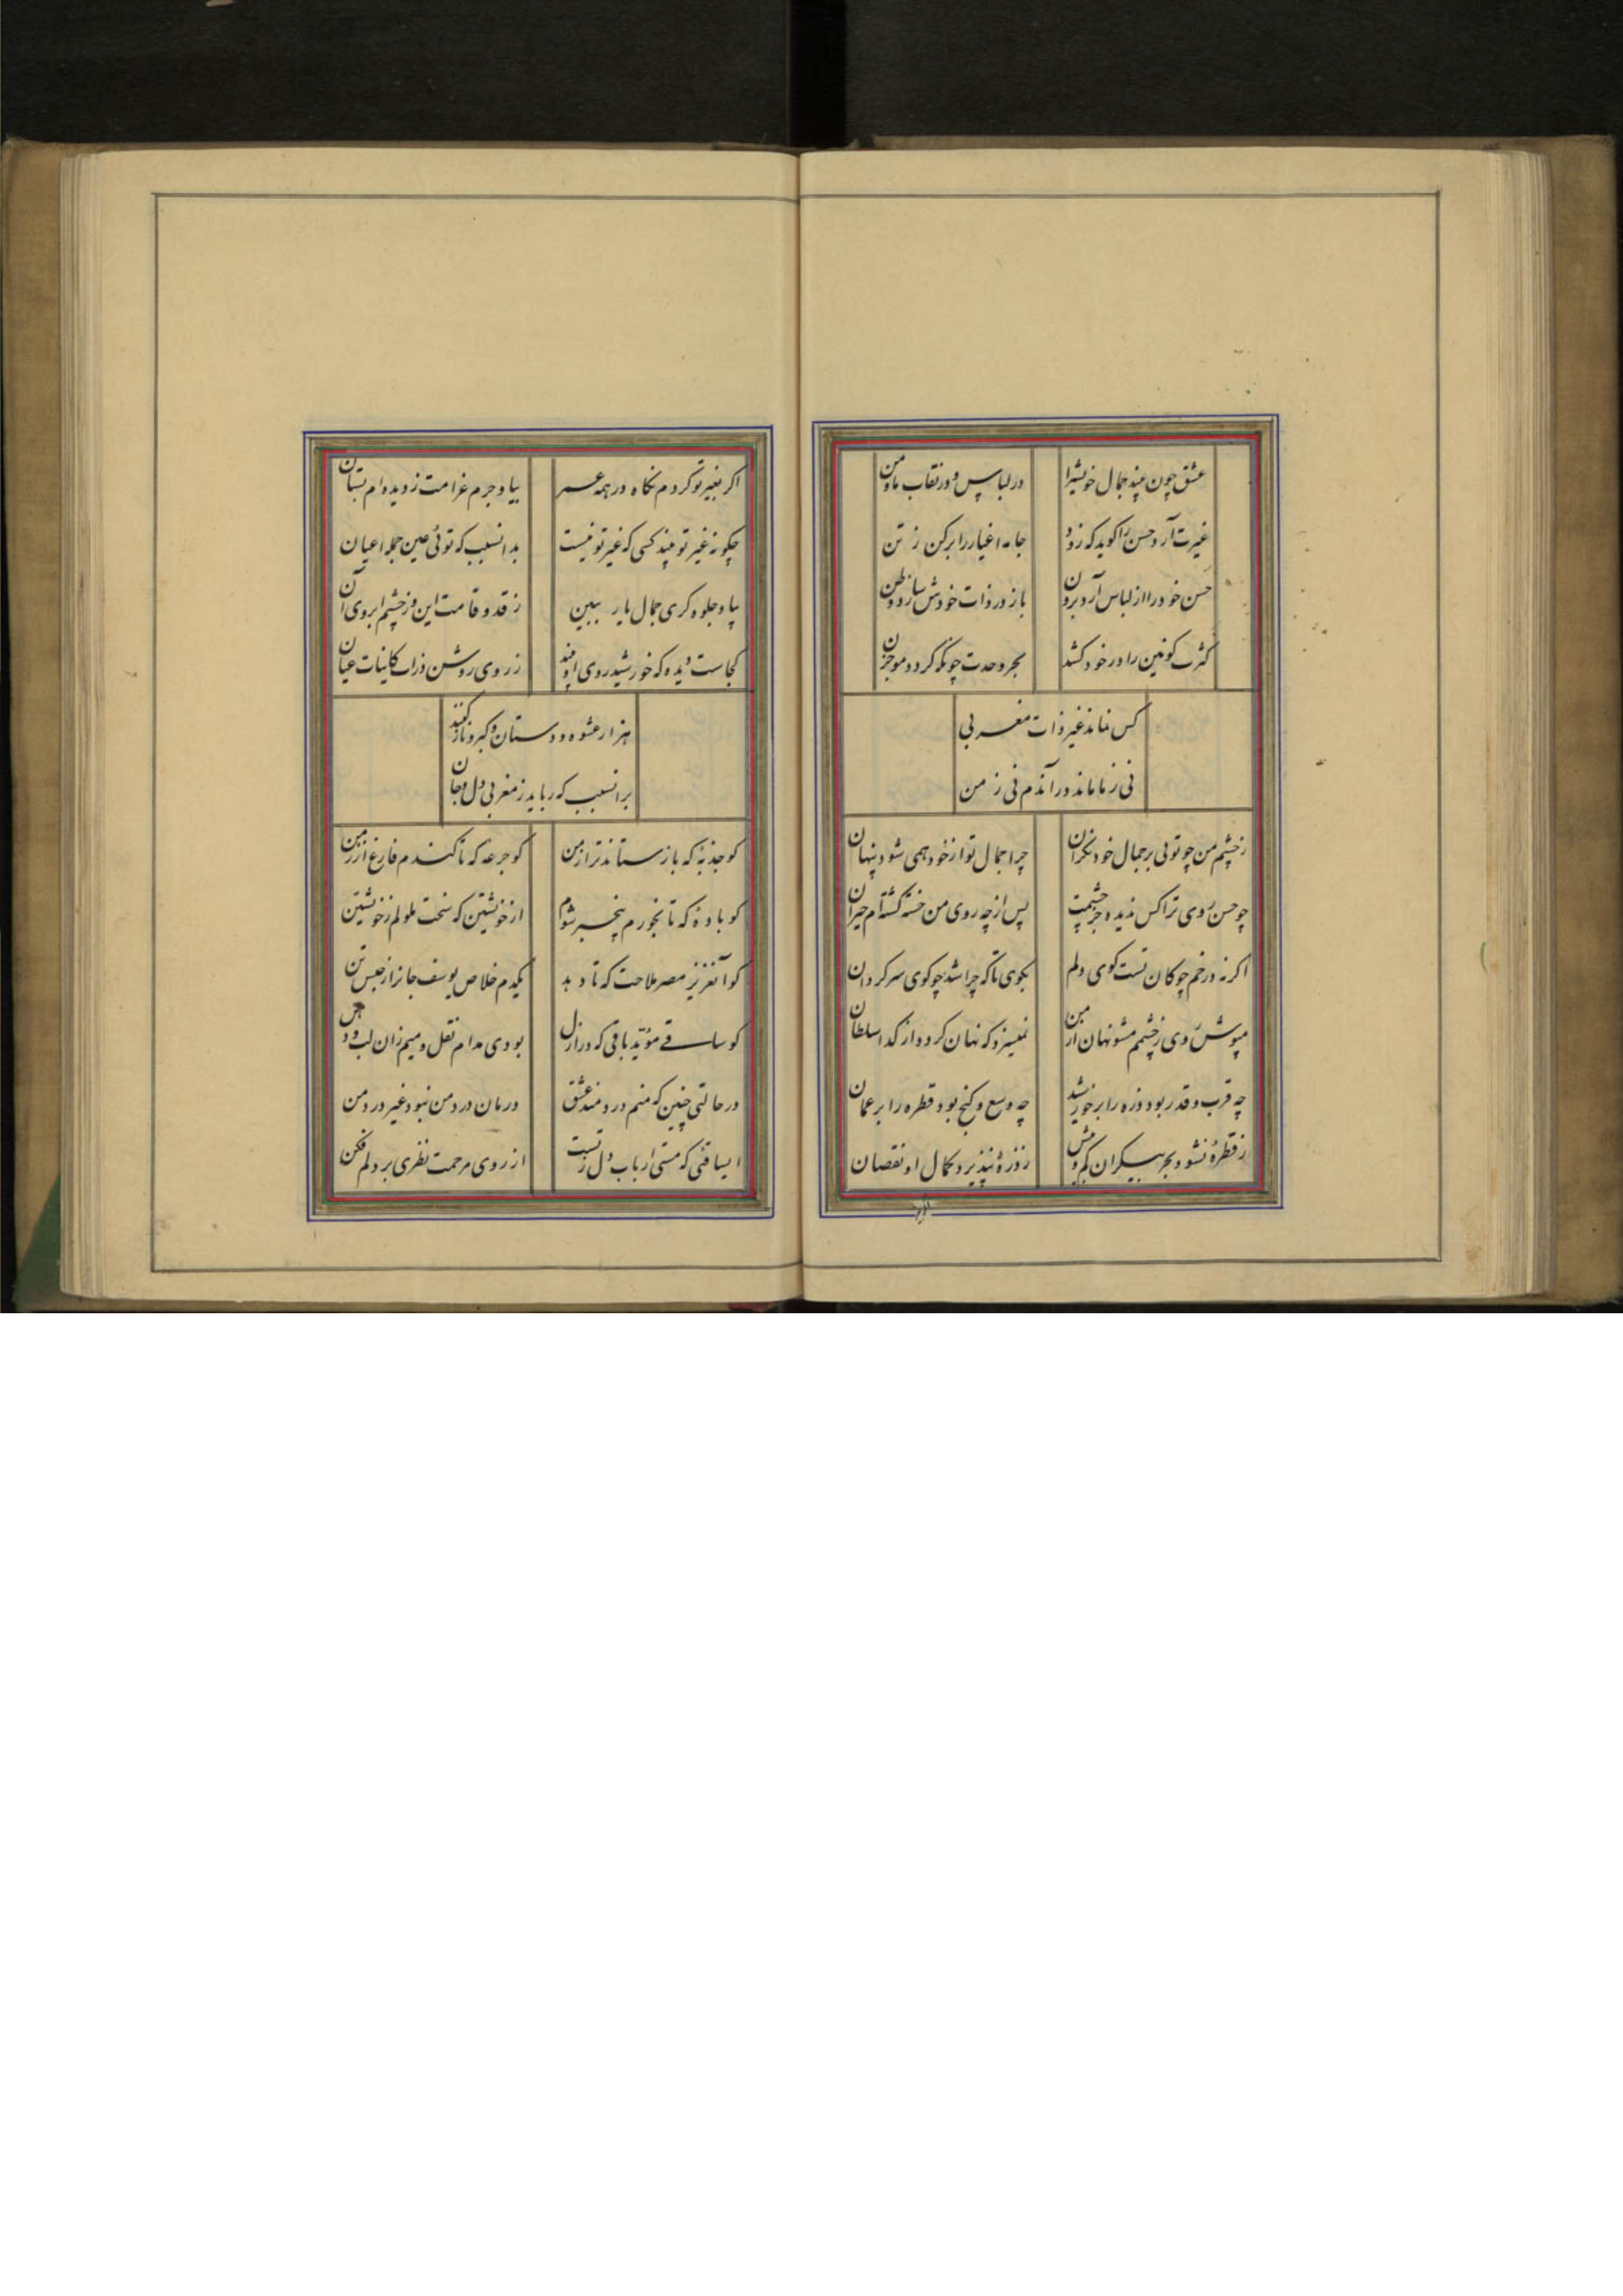 عشق چون بیند جمال خویش را
در لباس و در نقاب ما و من
غیرت آرد حسن را گوید که زود
جامه اغیار را برکن ز تن
حسن خود را از لباس آرد برون
باز در ذات خودش سازد وطن
کثرت کونین را در خود کشد
بحر وحدت چونکه گردد موجزن
کس نماند غیر ذات مغربی
نی ز ما ماند در آندم نی ز من
ز چشم من چو توئی بر جمال خود نگران
چرا جمال تو از خود همی شود پنهان
چو حسن روی ترا کس ندیده جز چشمت
پس از چه روی من خسته گشته‌ام حیران
اگر نه در خم چوکان تست کوی دلم
بکوی تا که چرا شد چو کوی سرکردان
مپوش روی ز چشمم مشو نهان از من
نمیسزد که نهان کردد از کدا سلطان
چه قرب و قدر بود ذره را بر خورشید
چه وسع و کنج بود قطره را بر عمان
ز قطرهٔ نشود بحر بیکران کم و بیش
ز ذرهٔ نپذیرد کمال او نقصان
اگر بغیر تو کردم نگاه در همه عمر
بیا و جرم غرامت ز دیده‌ام بستان
چگونه غیر تو بیند کسی که غیر تو نیست
بدانسبب که توئی عین جمله اعیان
بیا و جلوه‌گری جمال یار ببین
ز قد و قامت این و ز چشم ابروی آن
کجاست دیده که خورشید روی او بیند
ز روی روشن ذرات کاینات عیان
هزار عشوه و دستان و کبر و ناز کند
برانسبب که رباید ز مغربی دل و جان
کو جذبهٔ که باز ستاند ترا ز من
کو جرعه که تا کندم فارغ از زمن
کو بادهٔ که تا بخورم بیخبر شوم
از خویشتن که سخت ملولم ز خویشتن
کو آنعزیز مصر ملاحت که تا دهد
یکدم خلاص یوسف جانرا ز حبس تن
کو ساقی مؤید باقی که در ازل
بودی مدام نقل و میم زان لب و دهن
در حالتی چنین که منم دردمند عشق
درمان درد من نبود غیر درد من
ای ساقئی که مستی ارباب دل ز تست
از روی مرحمت نظری بر دلم فکن